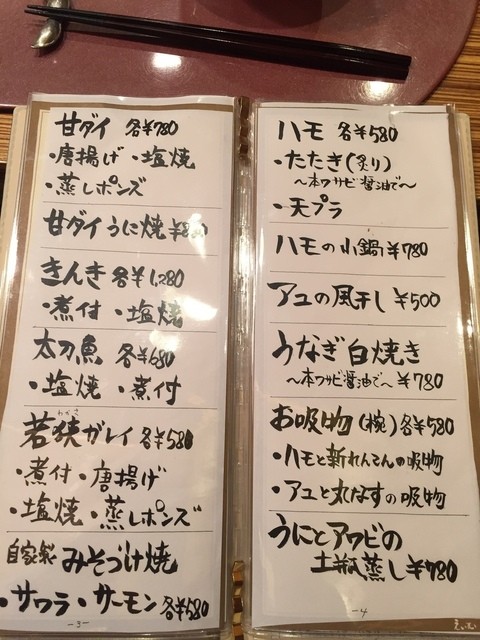 甘ダイ 各¥780
・唐揚げ ・塩焼
・蒸しポンズ
甘ダイうに焼¥880
きんき 各¥1,280
・煮付 ・塩焼
太刀魚 各¥680
・塩焼 ・煮付
わかさ
若狭ガレイ 各¥580
・煮付 ・唐揚げ
・塩焼 ・蒸しポンズ
自家製 みそづけ焼
・サワラ ・サーモン 各¥580
-3-
ハモ 各¥580
・たたき(炙り)
〜本ワサビ醤油で〜
・天プラ
ハモの小鍋 ¥780
アユの風干し ¥500
うなぎ白焼き
〜本ワサビ醤油で〜 ¥780
お吸物(椀) 各¥580
・ハモと新れんこんの吸物
・アユと丸なすの吸物
うにとアワビの
土瓶蒸し ¥780
-4-